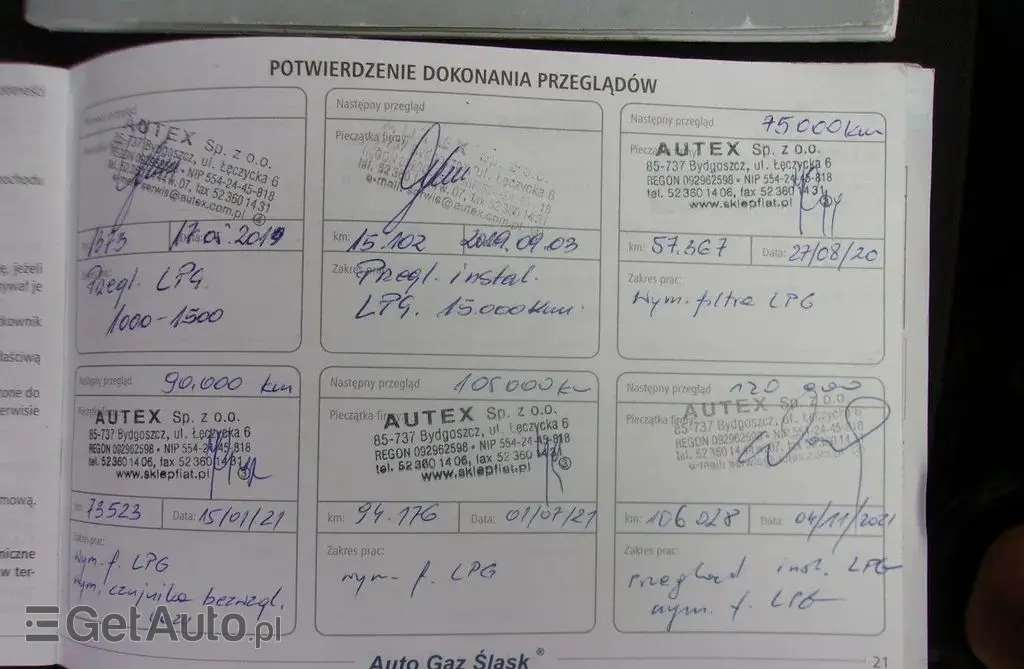 POTWIERDZENIE DOKONANIA PRZEGLĄDÓW
AUTEX Sp. z o.o.
85-737 Bydgoszcz, ul. Łęczycka 6
REGON 092962598 • NIP 554-24-45-818
fax 52 360 14 31
serwis@autex.com.pl
1373
2019
Przegl. LPG.
1000-1500
Następny przegląd
Pieczątka firmy
Sp. z o.o.
ul. Łęczycka 6
fax 52 360 14 31
e-mail: serwis@autex.com.pl
km: 15.102 2019.09.03
Zakres prac:
Przegl. instal.
LPG. 15.000km.
Następny przegląd 75000km
AUTEX Sp. z o.o.
85-737 Bydgoszcz, ul. Łęczycka 6
REGON 092962598 • NIP 554-24-45-818
tel. 52 360 14 06, fax 52 360 14 31
www.sklepfiat.pl
km: 57.367 Data: 27/08/20
Zakres prac:
Wym. filtra LPG
Następny przegląd 90.000 km
AUTEX Sp. z o.o.
85-737 Bydgoszcz, ul. Łęczycka 6
REGON 092962598 • NIP 554-24-45-818
tel. 52 360 14 06, fax 52 360 14 31
www.sklepfiat.pl
km: 73523 Data: 15/01/21
Zakres prac:
Wym. f. LPG
wym. czujnika bezwzgl.
Następny przegląd 105000 km
Pieczątka firmy
AUTEX Sp. z o.o.
85-737 Bydgoszcz, ul. Łęczycka 6
REGON 092962598 • NIP 554-24-45-818
tel. 52 360 14 06, fax 52 360 14 31
www.sklepfiat.pl
km: 94.176 Data: 01/07/21
Zakres prac:
wym. f. LPG
Następny przegląd 120 000
Pieczątka firmy
AUTEX Sp. z o.o.
85-737 Bydgoszcz, ul. Łęczycka 6
km: 106 028 Data: 04/11/2021
Zakres prac:
Przegląd inst. LPG
wym. f. LPG
GetAuto.pl
Auto Gaz Śląsk®
21